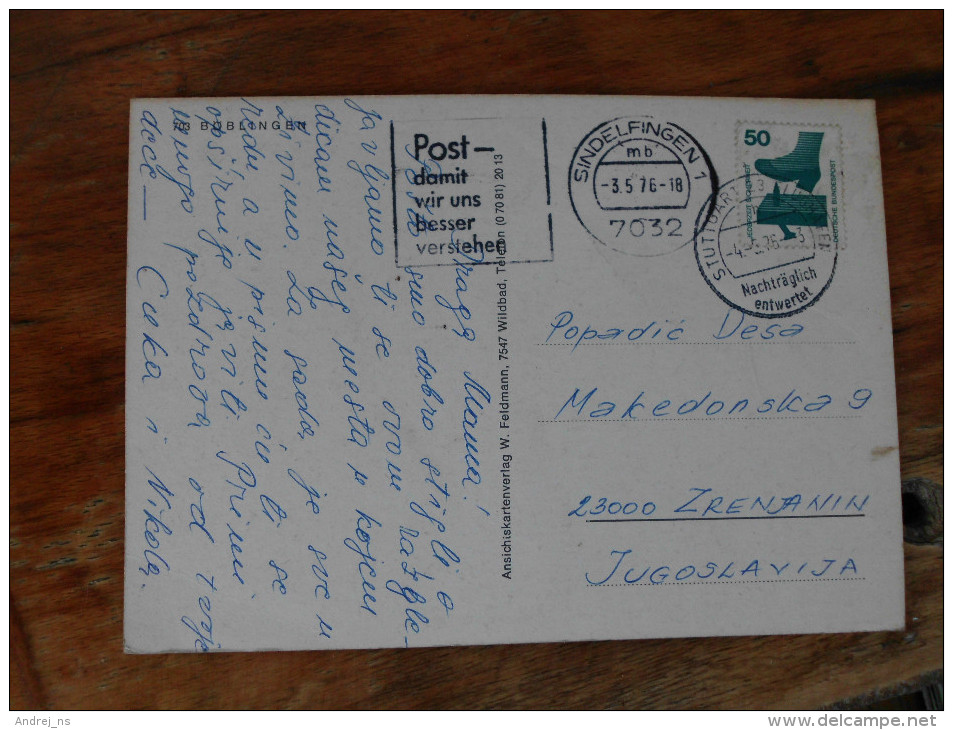 73 BÖBLINGEN
Draga Mama!
Pošto smo dobro stigli o
javljamo ti se ovom razgle-
dicom našeg mesta u kojem
živimo. Za sada, je sve u
redu, a u pismu ću ti se
opširnije javiti. Primi
mnogo pozdrava, od tvoje
dece — Cuka i Nikola.
Ansichtskartenverlag W. Feldmann, 7547 Wildbad, Telefon (0 70 81) 20 13
Post—
damit
wir uns
besser
verstehen
SINDELFINGEN 1
mb
-3.5.76-18
7032
50
JEDERZEIT SICHERHEIT
DEUTSCHE BUNDESPOST
STUTTGART
Nachträglich
entwertet
Popadić Desa
Makedonska 9
23000 ZRENJANIN
JUGOSLAVIJA
Andrej_ns
delcampe.net